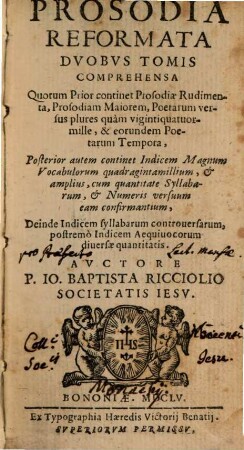 PROSODIA
REFORMATA
DVOBVS TOMIS
COMPREHENSA
Quorum Prior continet Prosodiæ Rudimen-
ta, Prosodiam Maiorem, Poetarum ver-
sus plures quàm vigintiquatuor-
mille, & eorundem Poe-
tarum Tempora,
Posterior autem continet Indicem Magnum
Vocabulorum quadragintamillium, &
amplius, cum quantitate Syllaba-
rum, & Numeris versuum
eam confirmantium,
Deinde Indicem syllabarum controuersarum,
postremò Indicem Aequiuocorum
diuersæ quantitatis.
AVCTORE
P. IO. BAPTISTA RICCIOLIO
SOCIETATIS IESV.
IHS
Coll.
Soc.
Iesu
Monachij
BONONIÆ. MDCLV.
Ex Typographia Hæredis Victorij Benatij.
SVPERIORVM PERMISSV.